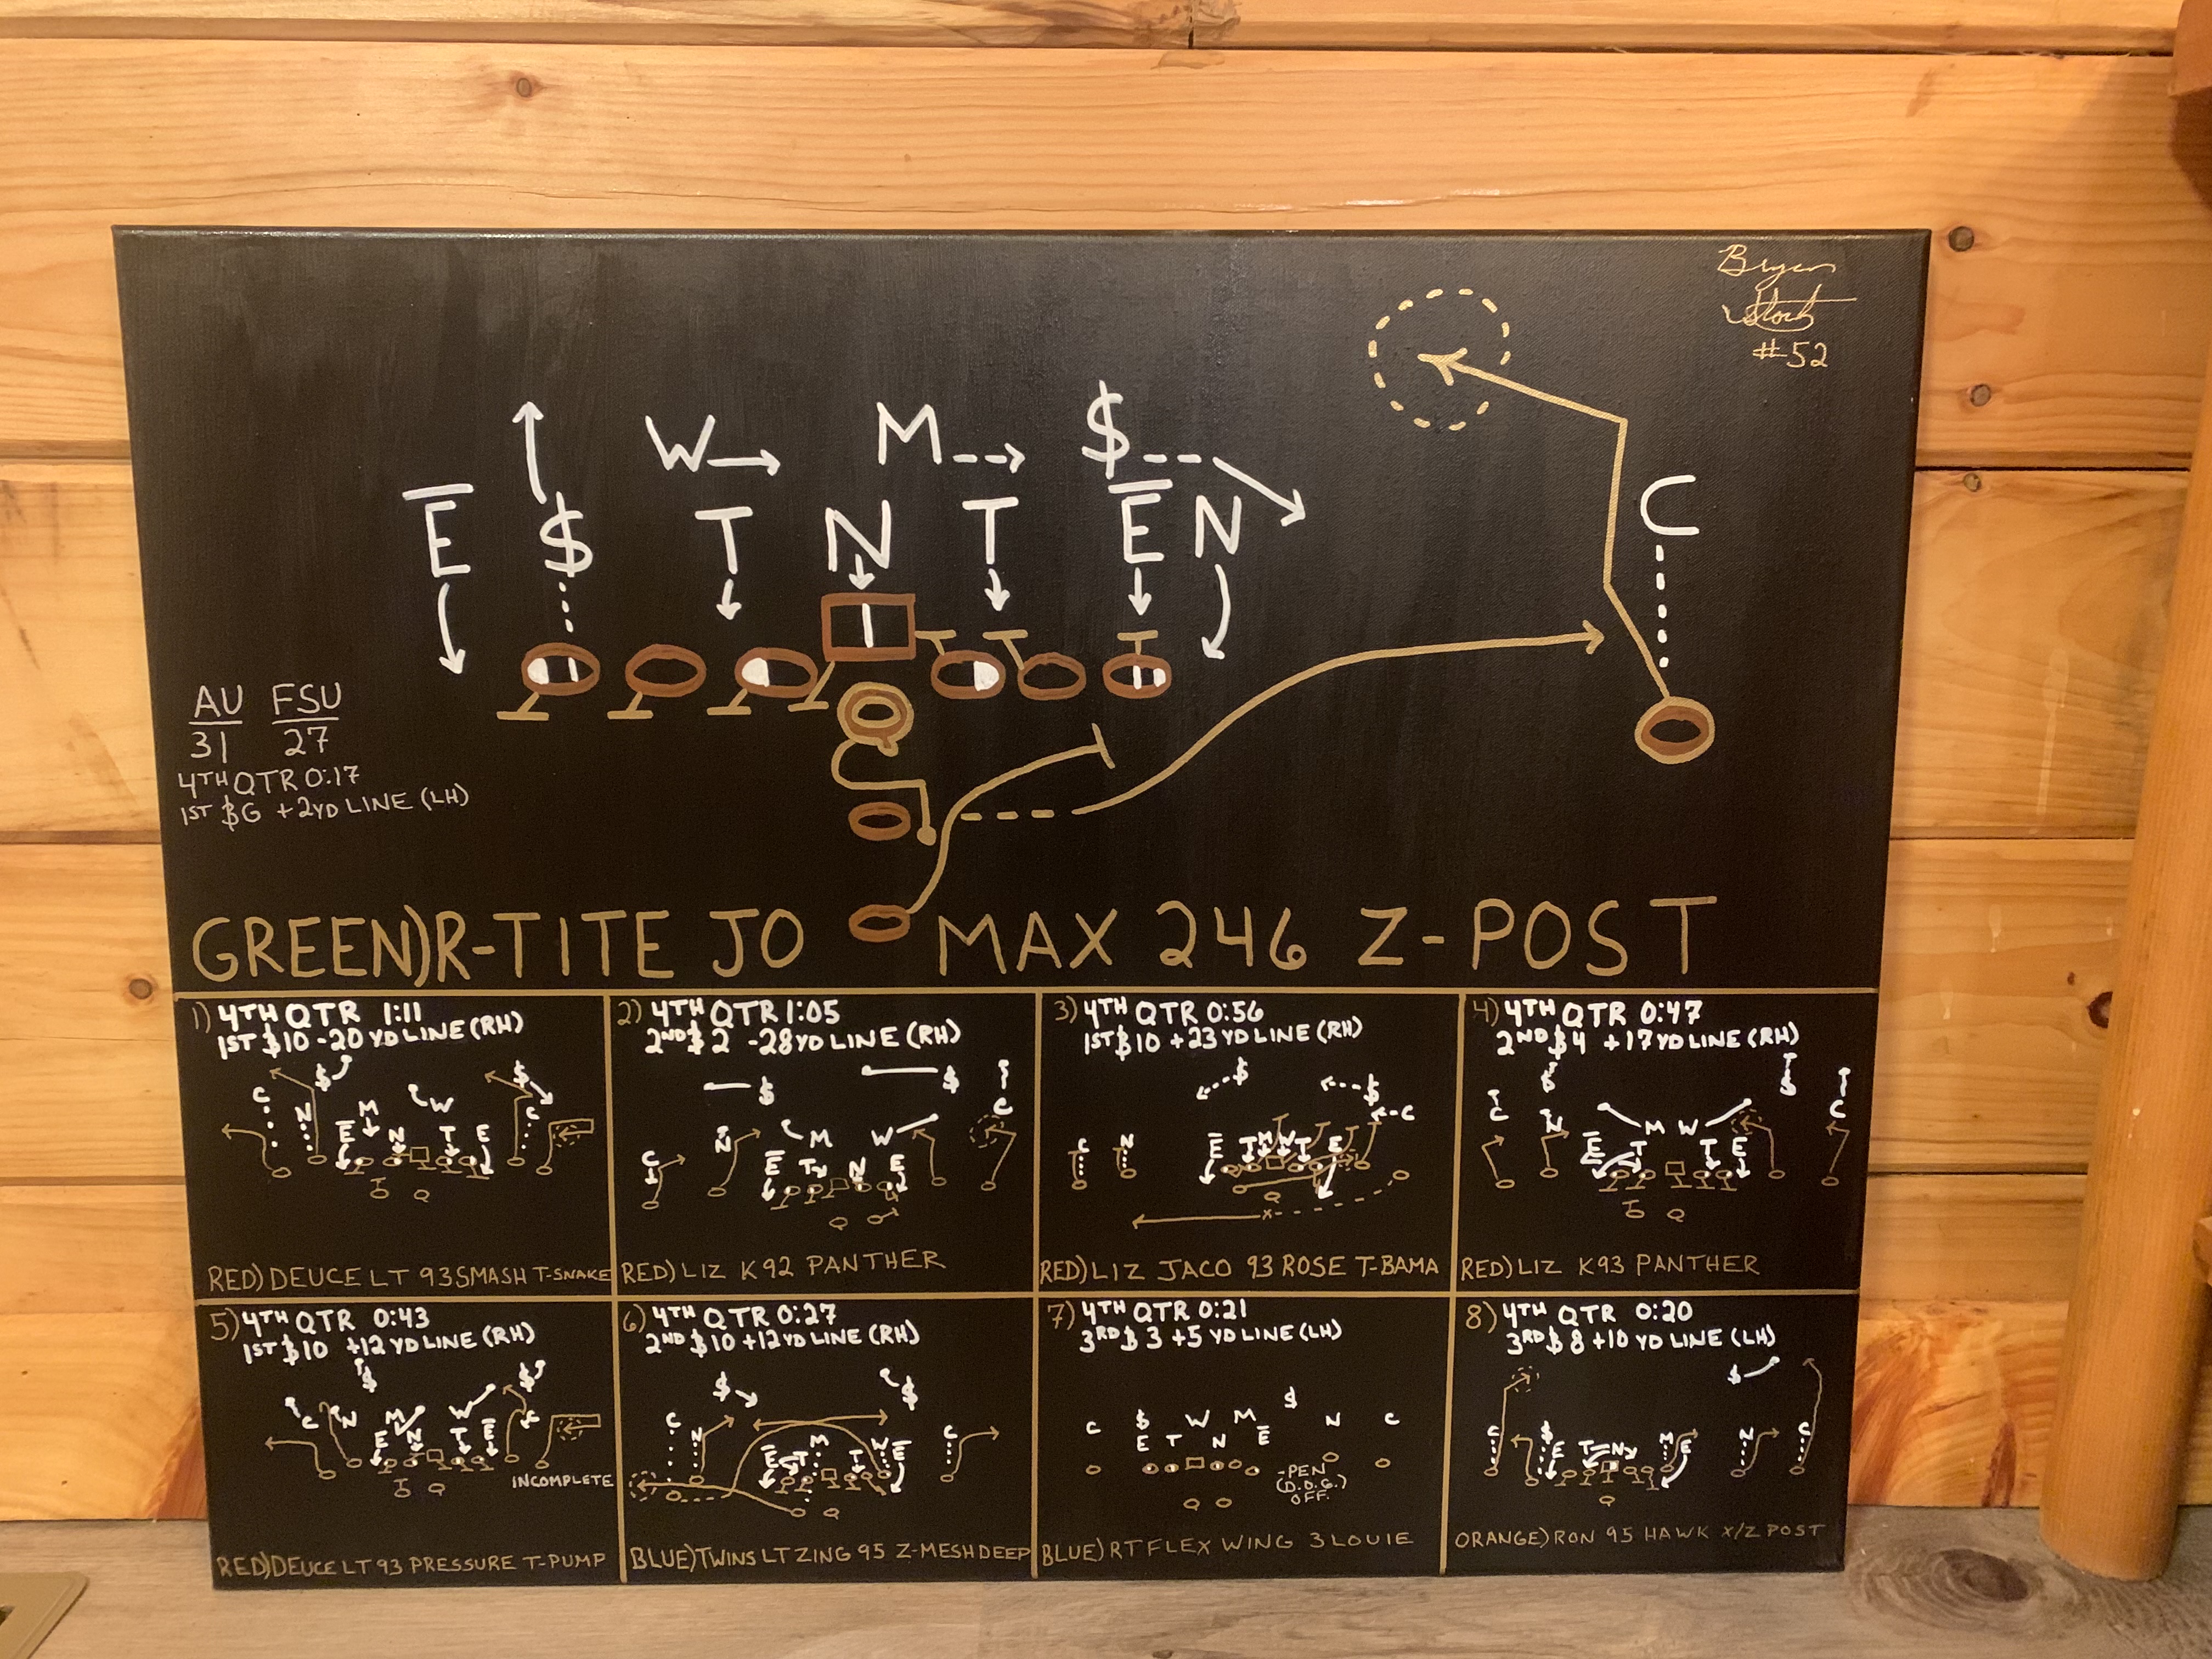 Bryan
Stork
#52
$
W
M
$
E
$
T
N
T
E
N
C
AU FSU
31 27
4TH QTR 0:17
1ST $ G +2 YD LINE (LH)
GREEN) R-TITE JO MAX 246 Z-POST
1) 4TH QTR 1:11
1ST $ 10 -20 YD LINE (RH)
RED) DEUCE LT 93 SMASH T-SNAKE
2) 4TH QTR 1:05
2ND $ 2 -28 YD LINE (RH)
RED) LIZ K92 PANTHER
3) 4TH QTR 0:56
1ST $ 10 +23 YD LINE (RH)
RED) LIZ JACO 93 ROSE T-BAMA
4) 4TH QTR 0:47
2ND $ 4 +17 YD LINE (RH)
RED) LIZ K93 PANTHER
5) 4TH QTR 0:43
1ST $ 10 +12 YD LINE (RH)
INCOMPLETE
RED) DEUCE LT 93 PRESSURE T-PUMP
6) 4TH QTR 0:27
2ND $ 10 +12 YD LINE (RH)
BLUE) TWINS LT ZING 95 Z-MESH DEEP
7) 4TH QTR 0:21
3RD $ 3 +5 YD LINE (LH)
-PEN
(D.O.G.)
OFF.
BLUE) RT FLEX WING 3 LOUIE
8) 4TH QTR 0:20
3RD $ 8 +10 YD LINE (LH)
ORANGE) RON 95 HAWK X/Z POST